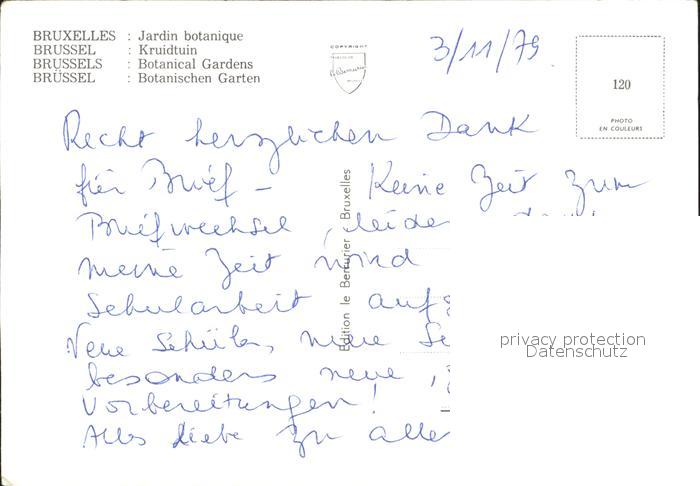 BRUXELLES : Jardin botanique
BRUSSEL : Kruidtuin
BRUSSELS : Botanical Gardens
BRÜSSEL : Botanischen Garten
COPYRIGHT
3/11/79
120
PHOTO
EN COULEURS
Recht herzlichen Dank
für Brief – Keine Zeit zum
Briefwechsel, leide
meine Zeit wird
Schularbeit aufg
Neue Schüler, neue Sc
besonders neue
Vorbereitungen!
Alles Liebe zu alle
Edition le Berrurier - Bruxelles
privacy protection
Datenschutz